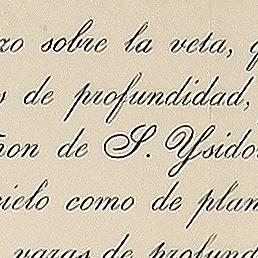 zo sobre la veta,
s de profundidad,
ñon de S. Ysido
cielo como de plan
varas de profund